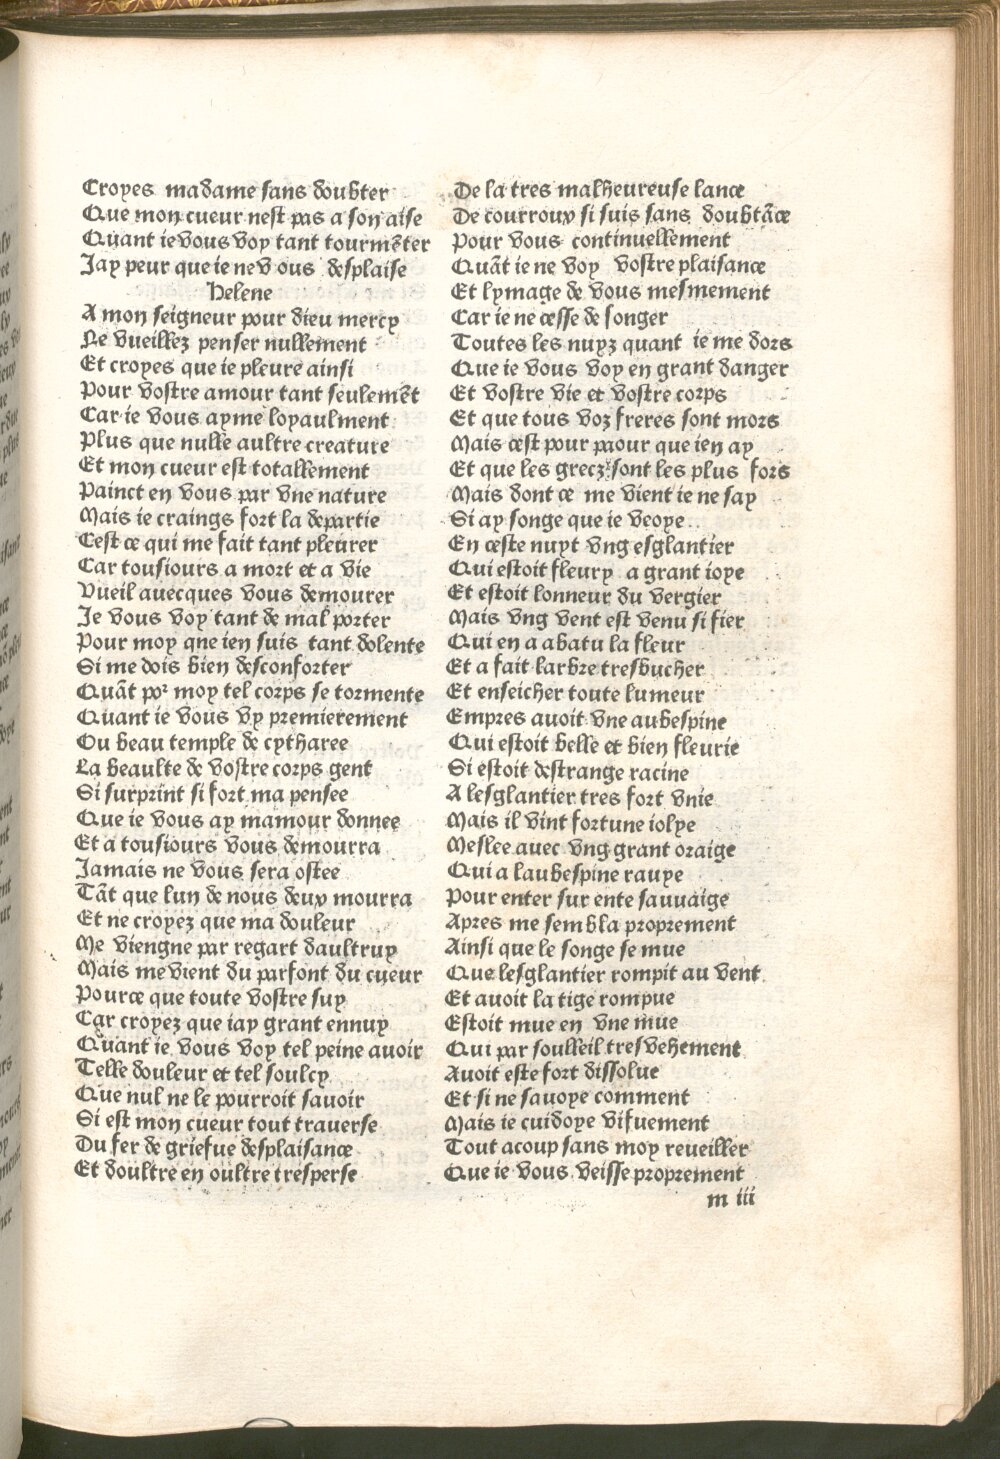 Croyes madame sans doubter
Que mon cueur nest pas a son aise
Quant ie vous voy tant tourmẽter
Jay peur que ie ne v ous desplaise
Helene
A mon seigneur pour dieu mercy
Ne vueillez penser nullement
Et croyes que ie pleure ainsi
Pour vostre amour tant seulemẽt
Car ie vous ayme loyaulment
Plus que nulle aultre creature
Et mon cueur est totallement
Painct en vous par vne nature
Mais ie craings fort la departie
Cest ce qui me fait tant pleurer
Car tousiours a mort et a vie
Vueil auecques vous demourer
Je vous voy tant de mal porter
Pour moy qne ien suis tant dolente
Si me dois bien desconforter
Quãt poꝛ moy tel corps se tormente
Quant ie vous vy premierement
Ou beau temple de cytharee
La beaulte de vostre corps gent
Si surprint si fort ma pensee
Que ie vous ay mamour donnee
Et a tousiours vous demourra
Jamais ne vous sera ostee
Tãt que lun de nous deux mourra
Et ne croyez que ma douleur
Me viengne par regart daultruy
Mais me vient du parfont du cueur
Pource que toute vostre suy
Car croyez que iay grant ennuy
Quant ie vous voy tel peine auoir
Telle douleur et tel soulcy
Que nul ne le pourroit sauoir
Si est mon cueur tout trauerse
Du fer de griefue desplaisance
Et doultre en oultre tresperse
De la tres malheureuse lance
De courroux si suis sans doubtãce
Pour vous continuellement
Quãt ie ne voy vostre plaisance
Et lymage de vous mesmement
Car ie ne cesse de songer
Toutes les nuyz quant ie me dors
Que ie vous voy en grant danger
Et vostre vie et vostre corps
Et que tous voz freres sont mors
Mais cest pour paour que ien ay
Et que les grecz sont les plus fors
Mais dont ce me vient ie ne say
Si ay songe que ie veoye
En ceste nuyt vng esglantier
Qui estoit fleury a grant ioye
Et estoit lonneur du vergier
Mais vng vent est venu si fier
Qui en a abatu la fleur
Et a fait larbre tresbucher
Et enseicher toute lumeur
Empres auoit vne aubespine
Qui estoit belle et bien fleurie
Si estoit destrange racine
A lesglantier tres fort vnie
Mais il vint fortune iolye
Meslee auec vng grant oraige
Qui a laubespine rauye
Pour enter sur ente sauuaige
Apres me sembla proprement
Ainsi que le songe se mue
Que lesglantier rompit au vent
Et auoit la tige rompue
Estoit mue en vne mue
Qui par soulleil tres vehement
Auoit este fort dissolue
Et si ne sauoye comment
Mais ie cuidoye vifuement
Tout acoup sans moy reueiller
Que ie vous veisse proprement
m iii